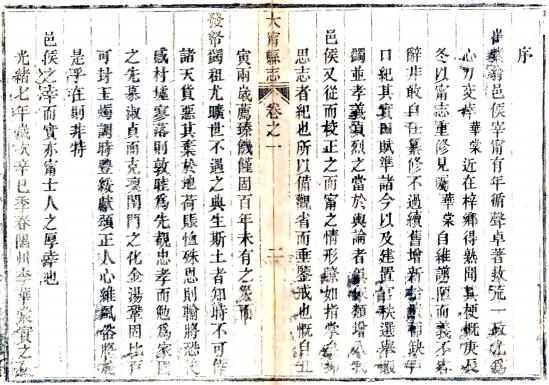 序
崔 邑侯宰甯有年循聲卓著救荒一政尤為
心力交瘁 華棠近在梓鄉得熟聞其梗概庚辰
冬以甯志重修見囑 華棠自維譾陋而義不
辭非敢自任纂修不過續舊增新 補缺
口紀其實田賦準諸今以及建置官秩選舉
鐲並孝義貞烈之當於輿論者 類增入
邑侯又從而校正之而甯之情形 如指掌
思志者紀也所以備觀省而垂鑒戒也慨自
大甯縣志
卷之一
二
寅兩歲薦臻饑饉固百年未有之災而
發帑蠲租尤曠世不遇之典生斯土者知時不可
諸天貨惡其棄於地荷賑恤殊恩則輸將恐
感村墟寥落則敦睦為先觀忠孝而勉為家
之先慕淑貞而克 閨門之化金湯鞏固比戶
可封玉燭調時豐綏獻頌正人心維風俗將
是乎在則非特
邑侯之幸而實亦甯士人之厚幸也
光緒七年歲次辛巳季春隰州李華棠實之